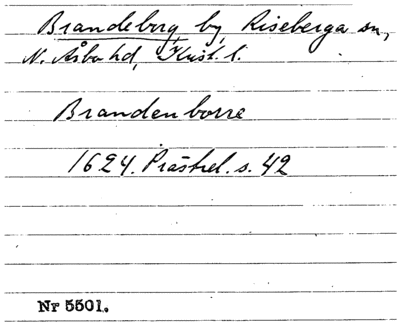 Brandeborg by, Riseberga sn,
N. Åsbo hd, Krist. l.
Brandenborre
1624. Prästrel. s. 42
Nr 5501.